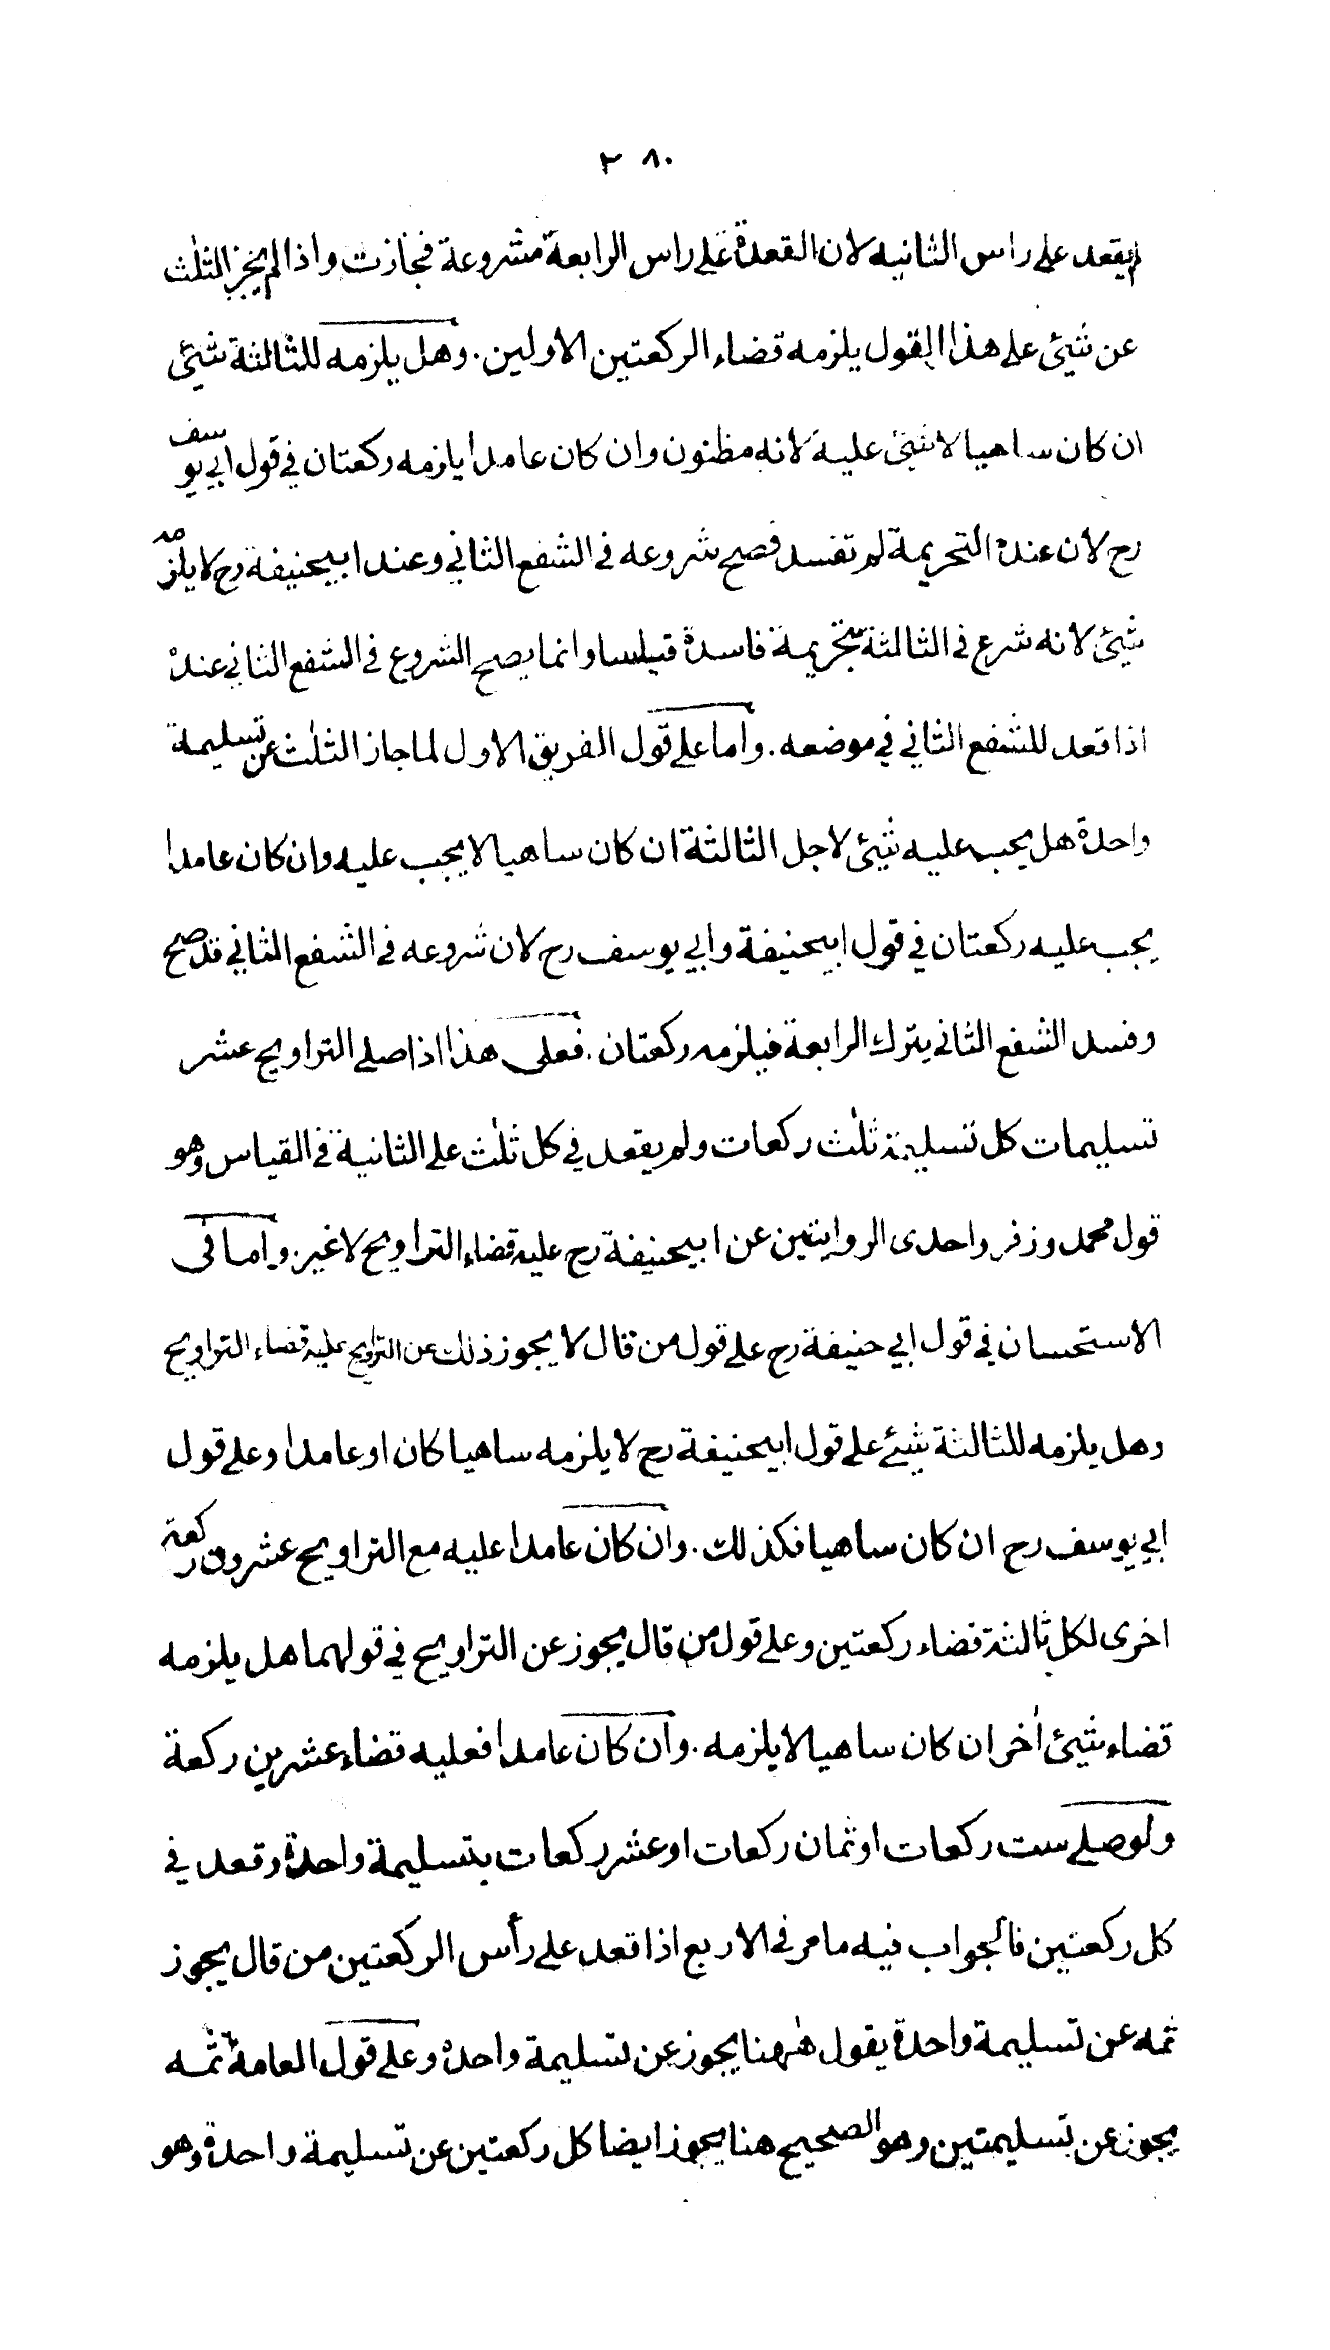 ٢٨٠
لم يقعد على راس الثانيه لان القعدة على راس الرابعة مشروعة فجازت واذا لم يجز الثلث
عن شيئ على هذا القول يلزمه قضاء الركعتين الاولين. وهل يلزمه للثالثة شيئ
ان كان ساهيا لا شيئ عليه لانه مظنون وان كان عامدا يلزمه ركعتان في قول ابي يوسف
رح لان عنده التحريمة لم تفسد فصح شروعه في الشفع الثاني وعند ابيحنيفة رح لا يلزمه
شيئ لانه شرع في الثالثة بتحريمة فاسدة قياسا وانما يصح الشروع في الشفع الثاني عنده
اذا قعد للشفع الثاني في موضعه. واما على قول الفريق الاول لما جاز الثلث عن تسليمة
واحدة هل يجب عليه شيئ لاجل الثالثة ان كان ساهيا لا يجب عليه وان كان عامدا
يجب عليه ركعتان في قول ابيحنيفة وابي يوسف رح لان شروعه في الشفع الثاني قد صح
وفسد الشفع الثاني بترك الرابعة فيلزمه ركعتان. فعلى هذا اذا صلى التراويح عشر
تسليمات كل تسليمة ثلث ركعات ولم يقعد في كل ثلث على الثانية في القياس وهو
قول محمد وزفر واحدى الروايتين عن ابيحنيفة رح عليه قضاء التراويح لا غير. واما في
الاستحسان في قول ابي حنيفة رح على قول من قال لا يجوز ذلك عن التراويح عليه قضاء التراويح
وهل يلزمه للثالثة شيئ على قول ابيحنيفة رح لا يلزمه ساهيا كان او عامدا وعلى قول
ابي يوسف رح ان كان ساهيا فكذلك. وان كان عامدا عليه مع التراويح عشرون ركعة
اخرى لكل ثالثة قضاء ركعتين وعلى قول من قال يجوز عن التراويح في قولهما هل يلزمه
قضاء شيئ اخر ان كان ساهيا لا يلزمه. وان كان عامدا فعليه قضاء عشرين ركعة
ولو صلى ست ركعات او ثمان ركعات او عشر ركعات بتسليمة واحدة وقعد في
كل ركعتين فالجواب فيه ما مر في الاربع اذا قعد على رأس الركعتين من قال يجوز
ثمه عن تسليمة واحدة يقول هٰهنا يجوز عن تسليمة واحدة وعلى قول العامة ثمه
يجوز عن تسليمتين وهو الصحيح هنا يجوز ايضا كل ركعتين عن تسليمة واحدة وهو